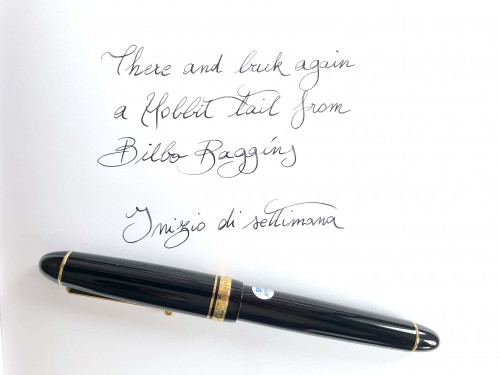 There and back again
a Hobbit tail from
Bilbo Baggins
Inizio di settimana